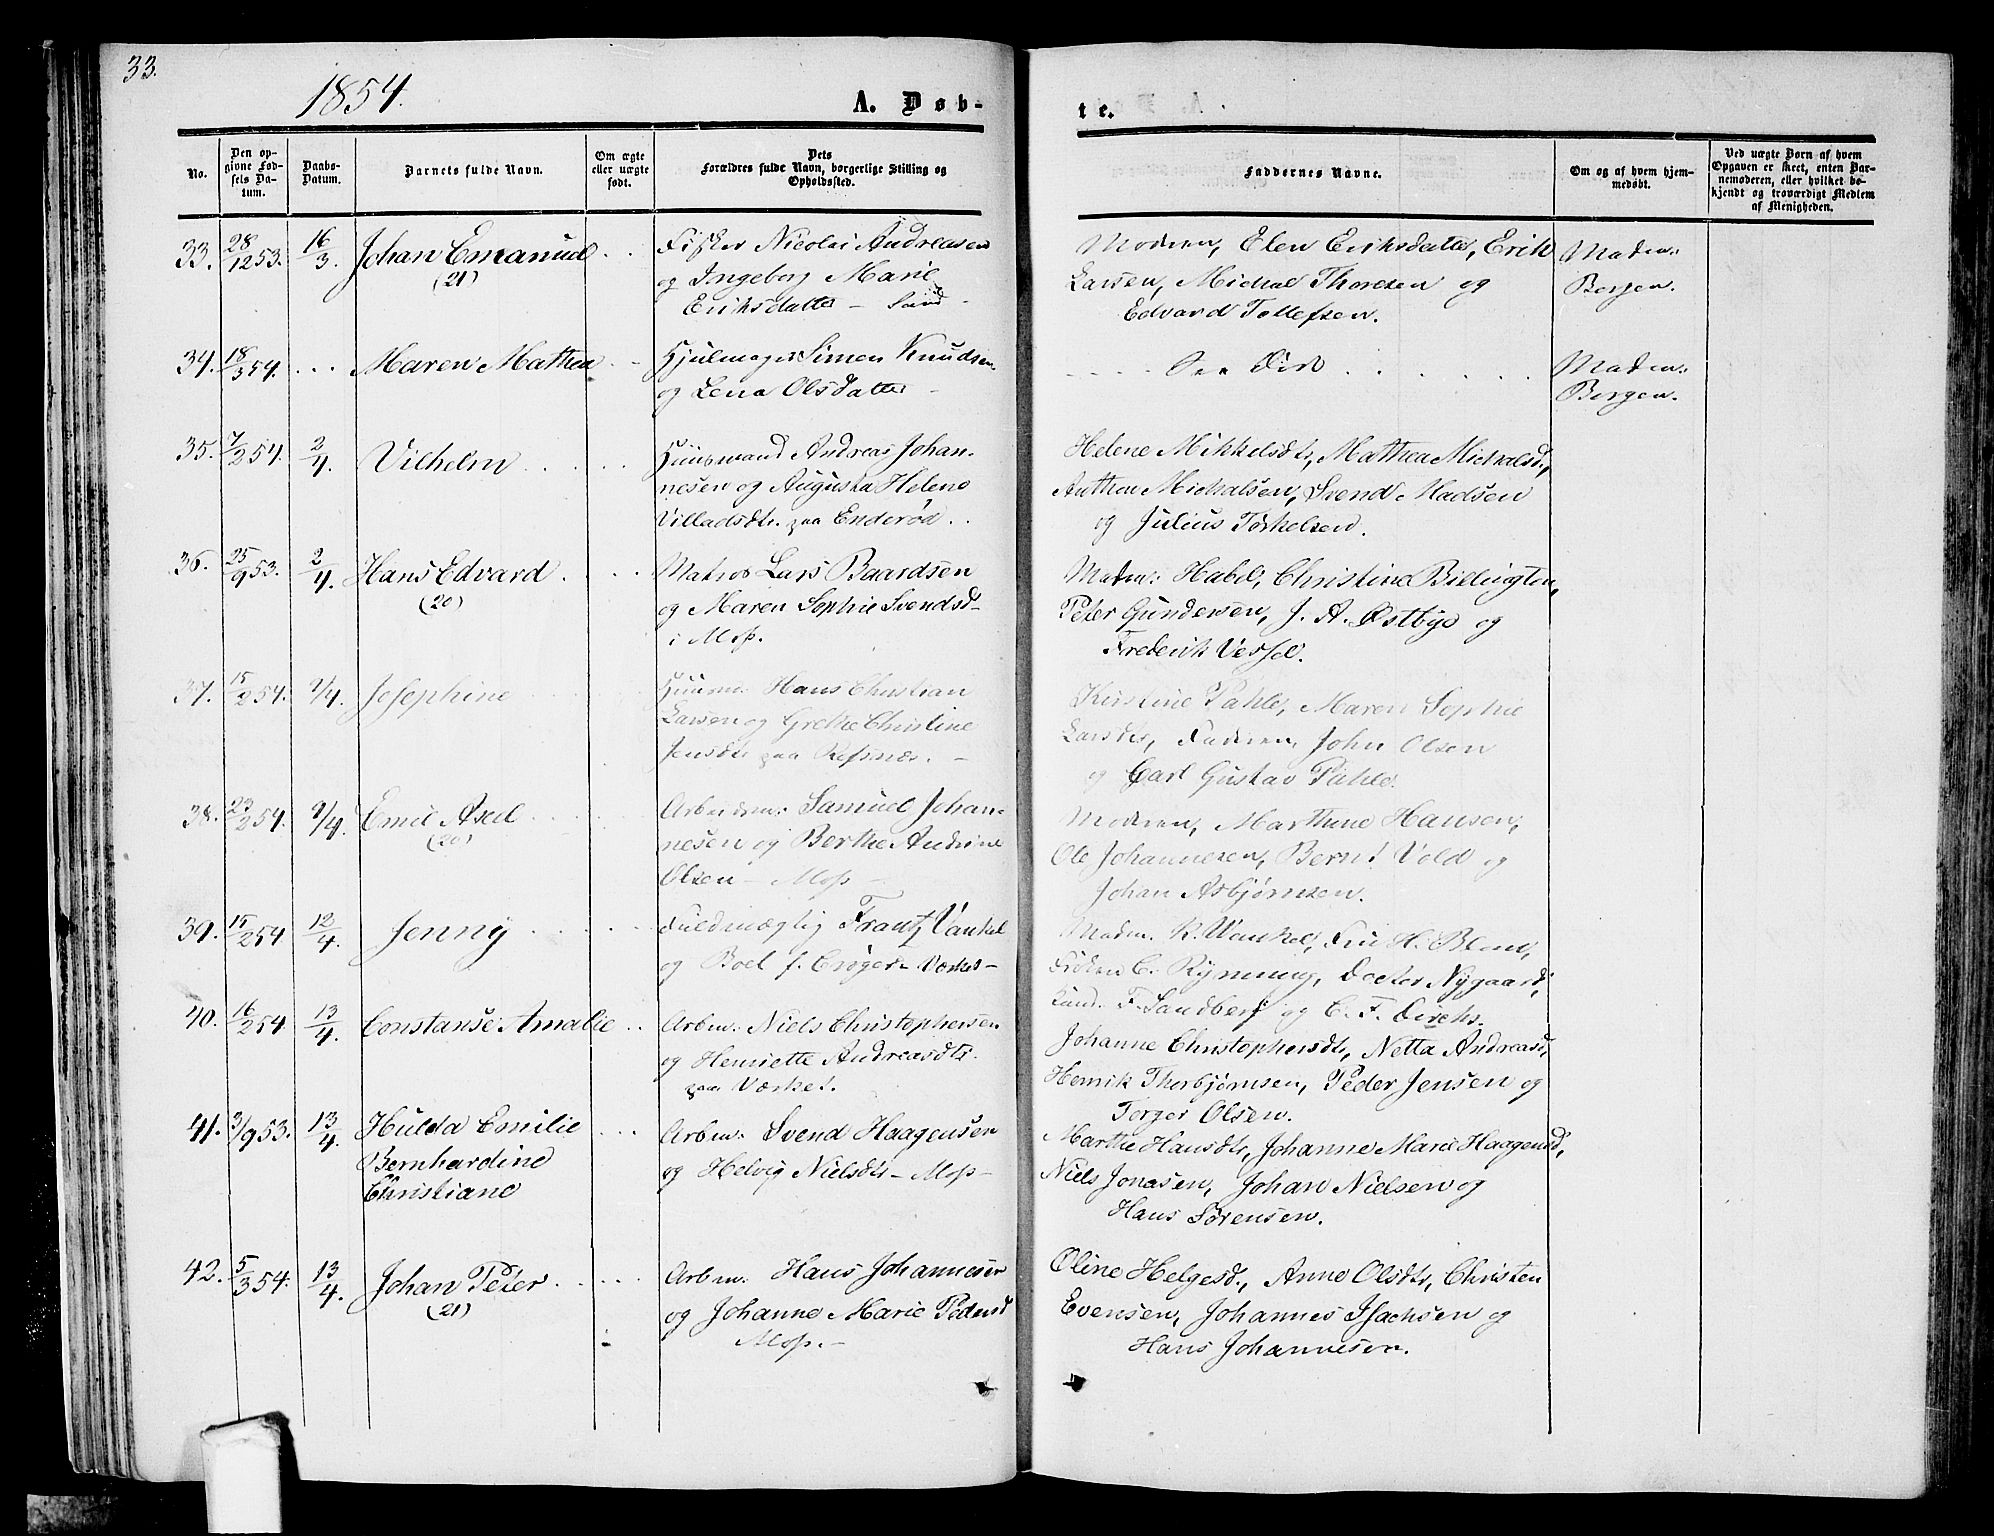 33.
1854.
A. Døb-
te.
No.
Den op-
givne Fød-
sels Da-
tum.
Daabs-
Datum.
Barnets fulde Navn.
Om ægte
eller uægte
født.
Dets
Forældres fulde Navn, borgerlige Stilling og
Opholdssted.
Faddernes Navne.
Om og af hvem hjem-
medøbt.
Ved uægte Børn af hvem
Opgaven er skeet, enten Bar-
nemoderen, eller hvilket be-
kjendt og troværdigt Medlem
af Menigheden.
33. 28/12 53. 16/3. Johan Emanuel
(21)
Fisker Nicolai Andreasen
og Ingeborg Marie
Eriksdatter -
Modren, Elen Eriksdatter, Erik
Larsen, Michal Thoresen og
Edvard Tollefsen.
Madm:
Bergen.
34. 18/3 54. ... Maren Mathea
Hjulmager Simen Knudsen
og Lena Olsdatter -
Madm:
Bergen.
35. 7/2 54. 2/4. Vilhelm
Huusmand Andreas Johan-
nesen og Augusta Helene
Villadsdtr. paa Enderød.
Helene Mikkelsdtr, Mathea Michelsd.,
Anthon Michalsen, Svend Madsen
og Julius Torkelsen.
36. 25/9 53. 2/4. Hans Edvard
(20)
Matros Lars Baardsen
og Maren Sophie Svendsd-
i Moss.
Madm: Habel, Christine Billington,
Peter Gundersen, J. A. Østbye og
Frederik Vessel.
37. 15/2 54. 9/4. Josephine
Huusm. Hans Christian
Larsen og Grethe Christine
Jensdtr paa Refsnæs. -
Kristine Pahle, Maren Sophie
Larsdtr, Fadren, John Olsen
og Carl Gustav Pahle.
38. 23/2 54. 9/4. Emil Axel
(20)
Arbeidsm: Samuel Johan-
nesen og Berthe Andrine
Olsen - Moss -
Modren, Marthine Hansen,
Ole Johannesen, Bernt Vold og
Johan Asbjørnsen.
39. 15/2 54 12/4. Jenny
Fuldmægtig Frantz Vankel
og Boel f. Crøger - Værket -
Madm. K. Wankel, Fru H. Blom,
Frøken C. Rynning, Doctor Nygaard,
Cand. F. Sandberg og C. F. Dirchs.
40. 16/2 54 13/4. Constanse Amalie
Arbm: Niels Christophersen
og Henriette Andreasdtr.
paa Værket.
Johanne Christophersdtr, Netta Andreasd,
Henrik Thorbjørnsen, Peder Jensen og
Torger Olsen.
41. 3/9 53. 13/4. Hulda Emilie
Bernhardine
Christiane
Arbm: Svend Haagensen
og Helvig Nielsdtr - Moss -
Marthe Hansdtr, Johanne Marie Haagensd,
Niels Jonasen, Johan Nielsen og
Hans Sørensen.
42. 5/3 54. 13/4. Johan Peter
(21)
Arbm. Hans Johannesen
og Johanne Marie Pedersd
Moss. -
Oline Helgesd., Anne Olsdtr, Christen
Evensen, Johannes Isachsen og
Hans Johannesen.